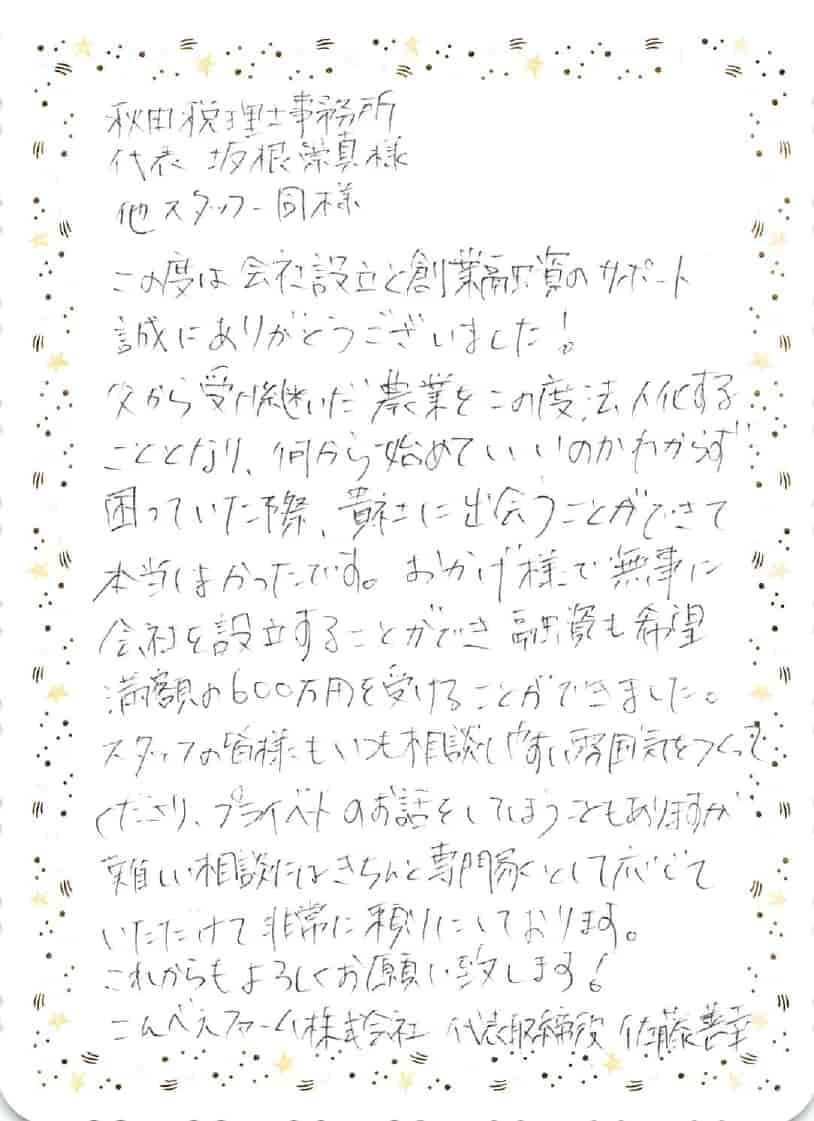 秋田税理士事務所
代表 坂根崇真様
他スタッフ一同様
この度は会社設立と創業融資のサポート
誠にありがとうございました!
父から受け継いだ農業をこの度法人化する
こととなり、何から始めていいのかわからず
困っていた際、貴社に出会うことができて
本当によかったです。おかげ様で無事に
会社を設立することができ融資も希望
満額の600万円を受けることができました。
スタッフの皆様にもいつも相談しやすい雰囲気をつくって
くださり、プライベートのお話をしてしまうこともありますが
難しい相談にはきちんと専門家として応じて
いただけて非常に頼りにしております。
これからもよろしくお願い致します!
こんべえファーム株式会社 代表取締役 佐藤善幸